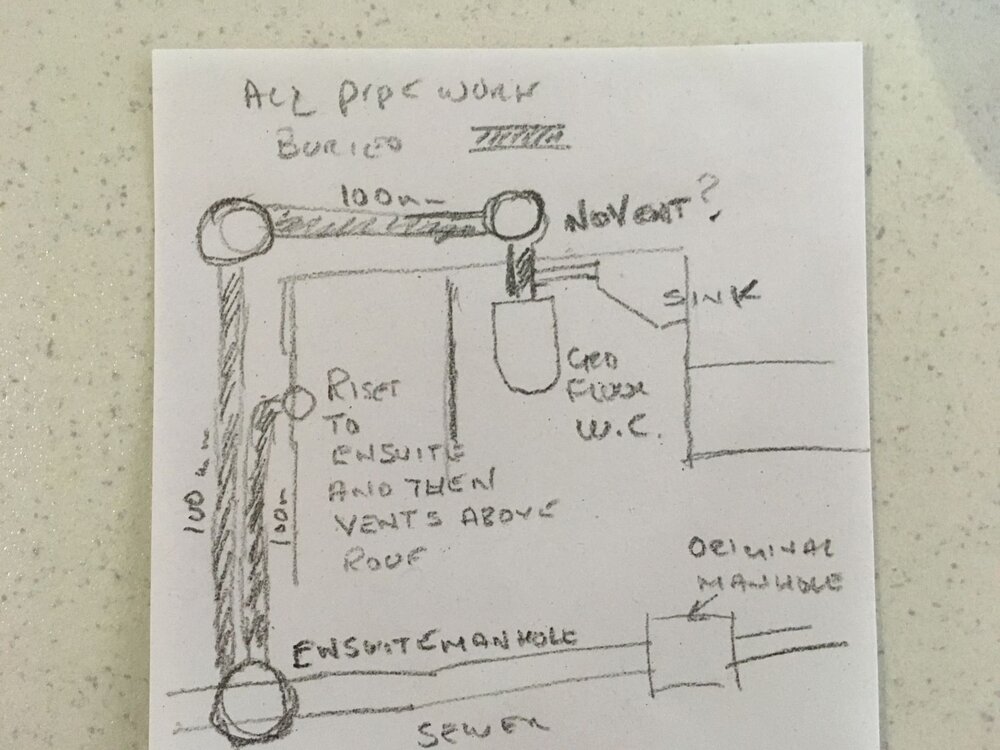 ALL PIPEWORK
BURIED
100mm
NO VENT?
SINK
GRD
FLOOR
W.C.
RISET
TO
ENSUITE
AND THEN
VENTS ABOVE
ROOF
100mm
100m
ORIGINAL
MANHOLE
ENSUITE MANHOLE
SEWER